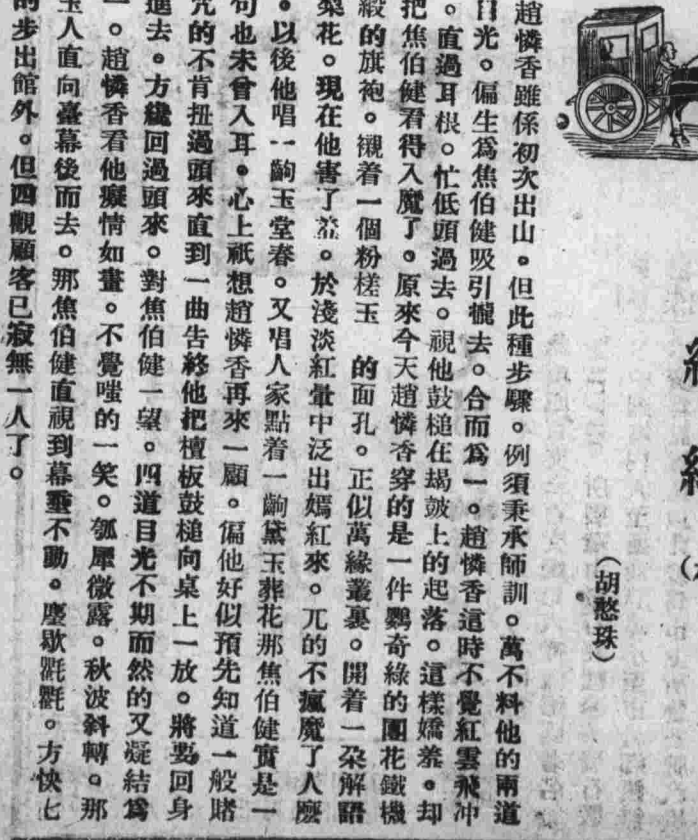 （胡憨珠）
趙憐香雖係初次出山。但此種步驟。例須秉承師訓。萬不料他的兩道
目光。偏生為焦伯健吸引攏去。合而為一。趙憐香這時不覺紅雲飛冲
。直過耳根。忙低頭過去。視他鼓槌在羯鼓上的起落。這樣嬌羞。却
把焦伯健看得入魔了。原來今天趙憐香穿的是一件鸚奇綠的團花鐵機
緞的旗袍。襯着一個粉槎玉 的面孔。正似萬緣叢裏。開着一朶解語
菜花。現在他害了羞。於淺淡紅暈中泛出嫣紅來。兀的不瘋魔了人麽
。以後他唱一齣玉堂春。又唱人家點着一齣黛玉葬花那焦伯健實是一
句也未曾入耳。心上祇想趙憐香再來一顧。偏他好似預先知道一般賭
咒的不肯扭過頭來直到一曲告終他把檀板鼓槌向桌上一放。將要回身
進去。方纔回過頭來。對焦伯健一望。四道目光不期而然的又凝結為
一。趙憐香看他癡情如畫。不覺嗤的一笑。瓠犀微露。秋波斜轉。那
玉人直向臺幕後而去。那焦伯健直視到幕垂不動。塵歇氍氍。方怏七
的步出館外。但四觀顧客已寂無一人了。